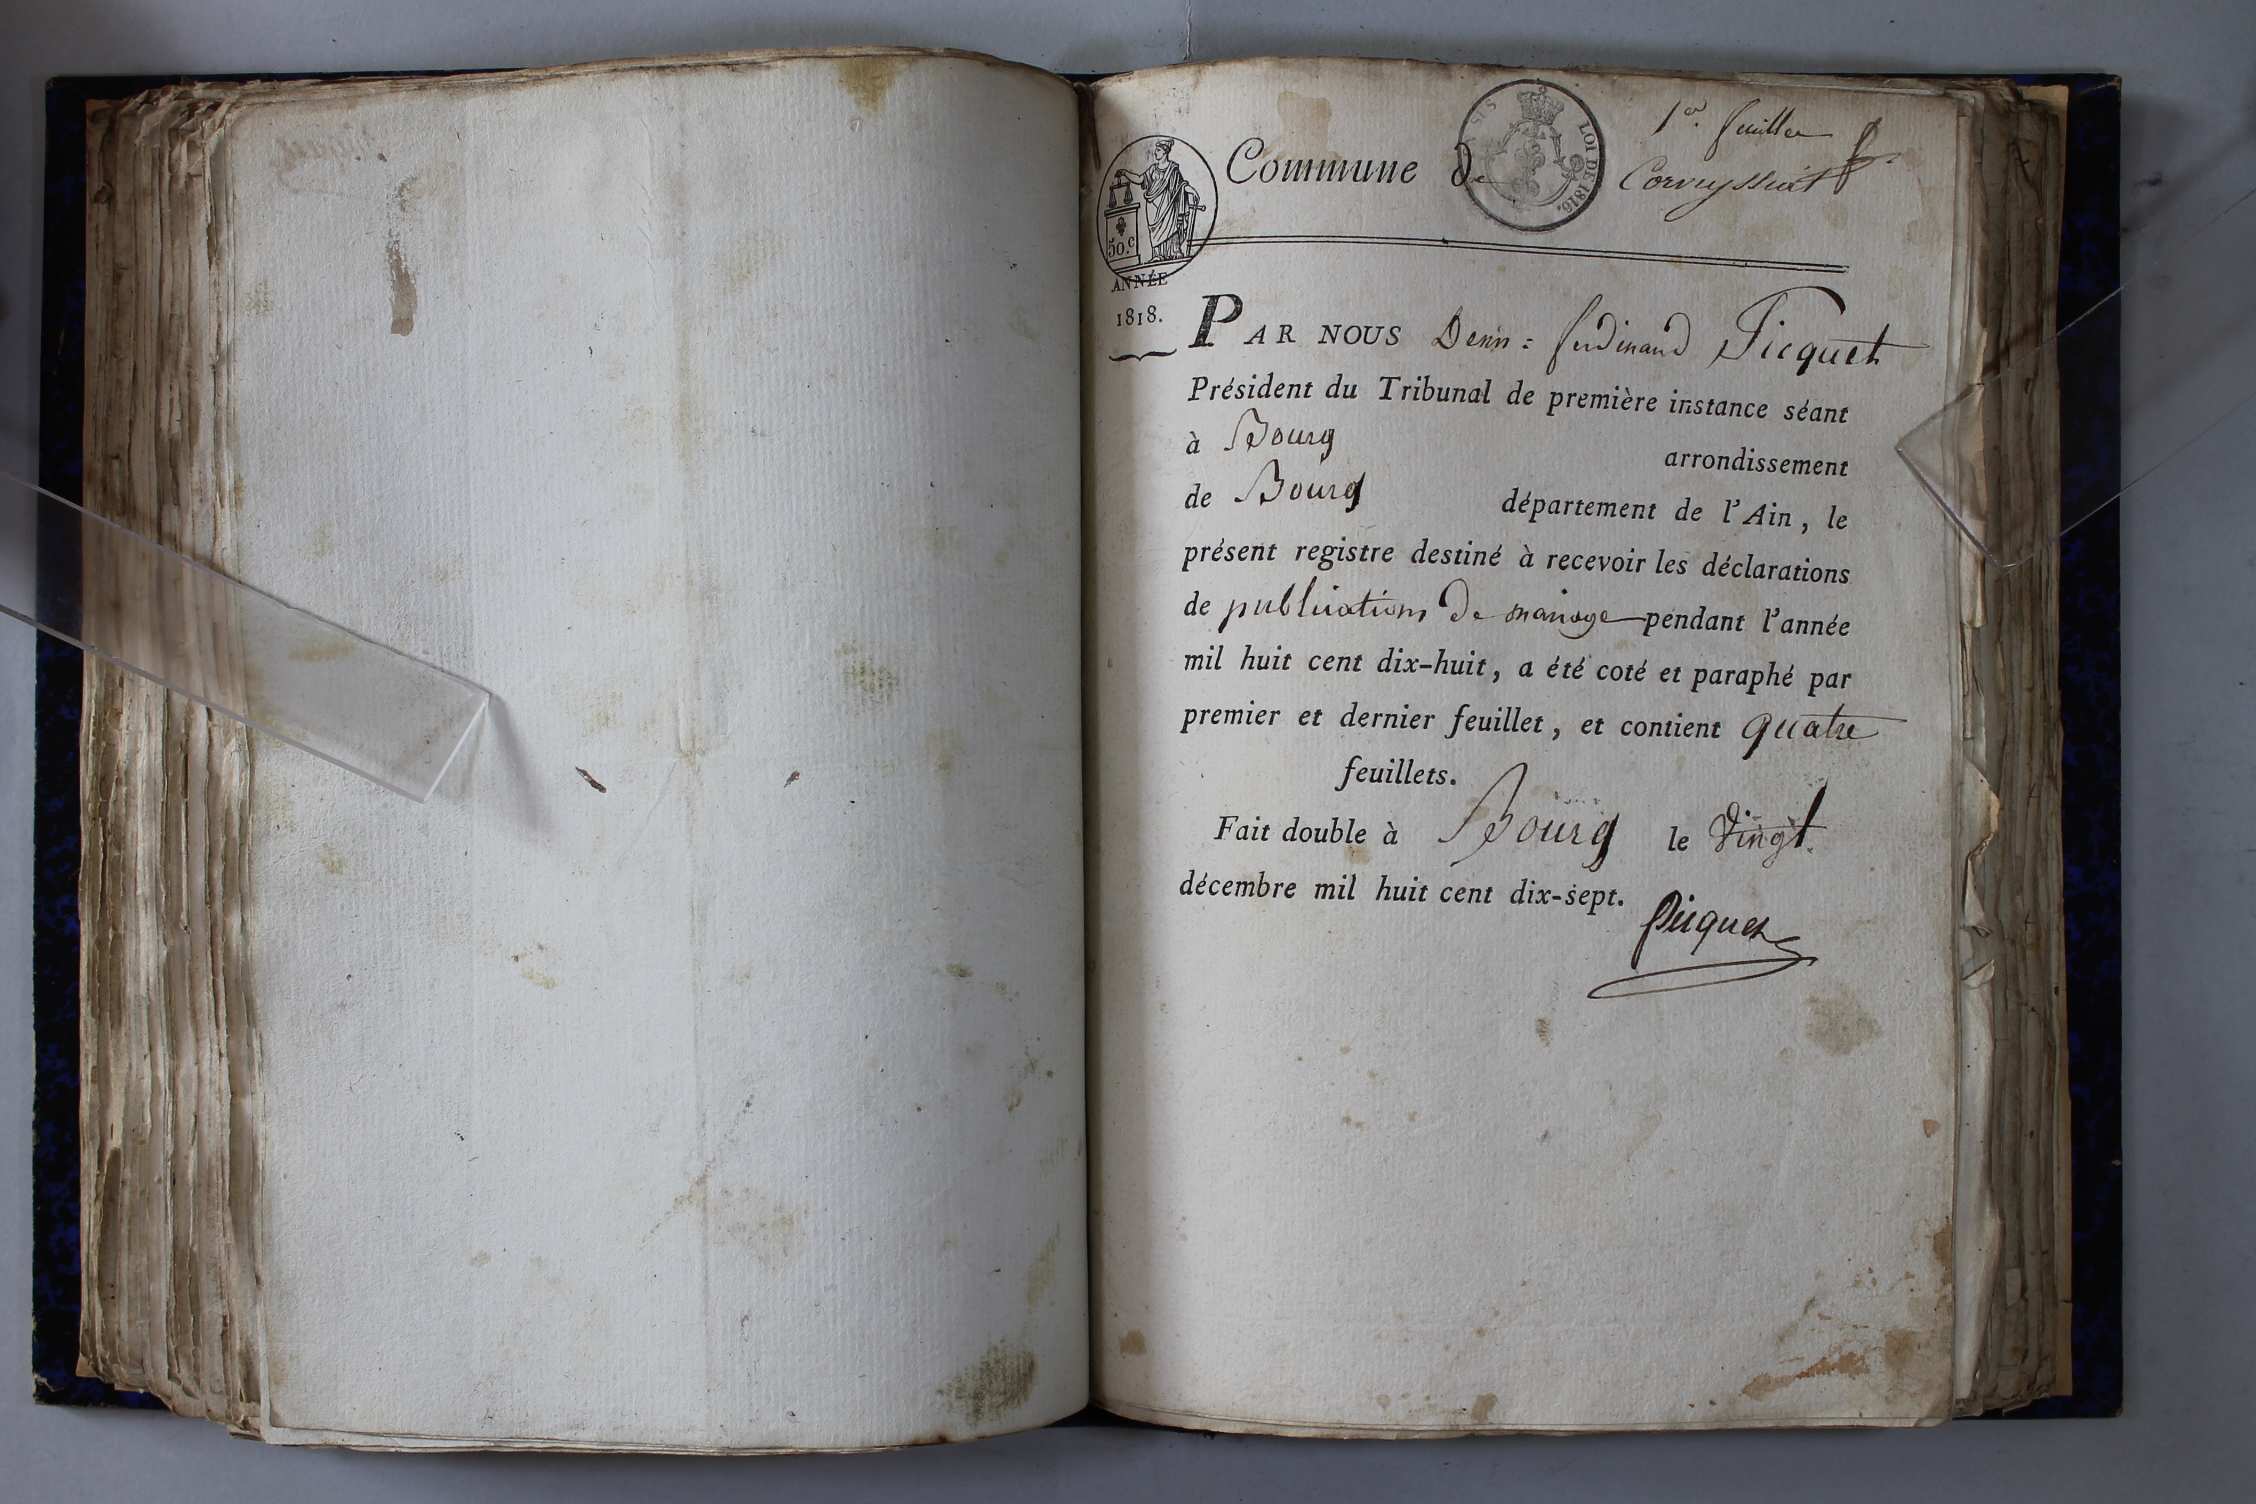 1er. feuillet
Commune De Corveyssiat
LOI DE 1816.
50.c
ANNÉE
1818.
PAR NOUS Denis = ferdinand Picquet
Président du Tribunal de première instance séant
à Bourg arrondissement
de Bourg département de l'Ain, le
présent registre destiné à recevoir les déclarations
de publications De mariage pendant l'année
mil huit cent dix-huit, a été coté et paraphé par
premier et dernier feuillet, et contient quatre
feuillets.
Fait double à Bourg le Vingt
décembre mil huit cent dix-sept.
Picquet